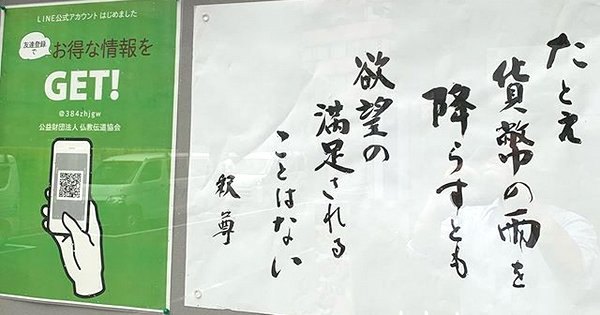 LINE公式アカウント はじめました
友達登録
で
お得な情報を
GET!
@384zhjgw
公益財団法人 仏教伝道協会
たとえ
貨幣の雨を
降らすとも
欲望の
満足される
ことはない
釈尊